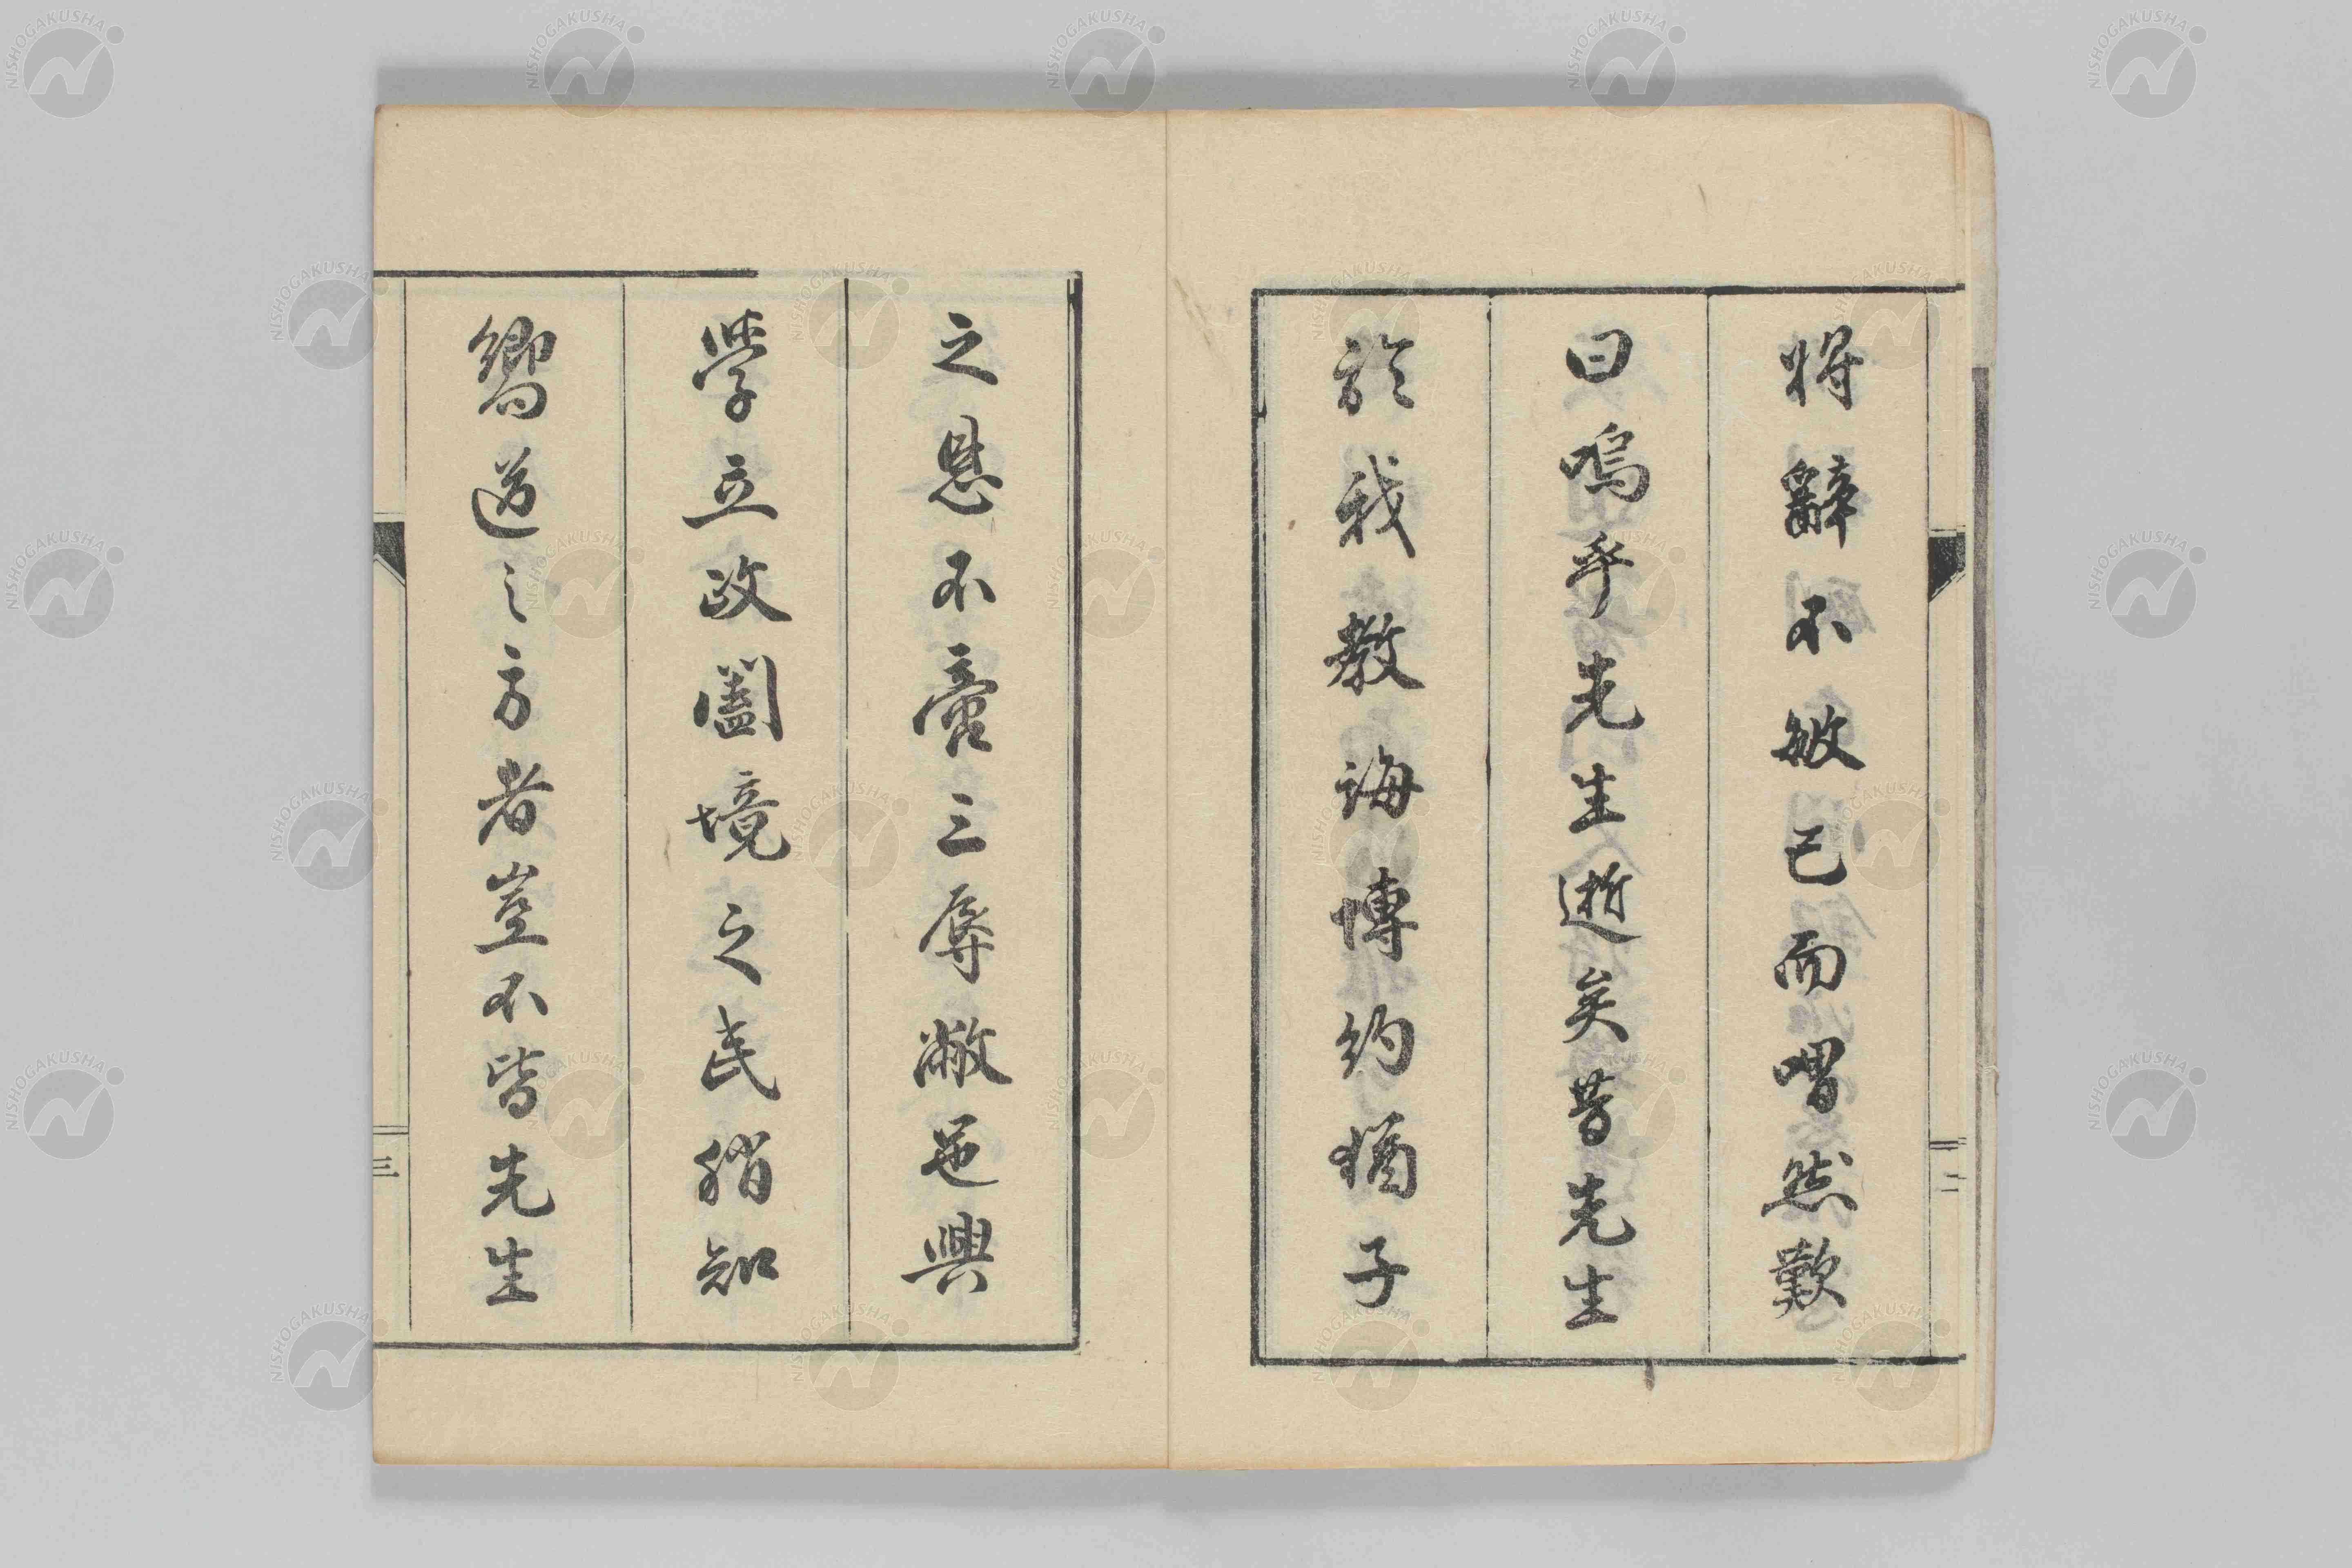 将辭不敏已而喟然歎
曰嗚乎先生逝矣昔先生
於我教誨博約猶子
二
之恩不啻三辱敝邑興
學立政闔境之民稍知
嚮道之方者豈不皆先生
三
NISHOGAKUSHA